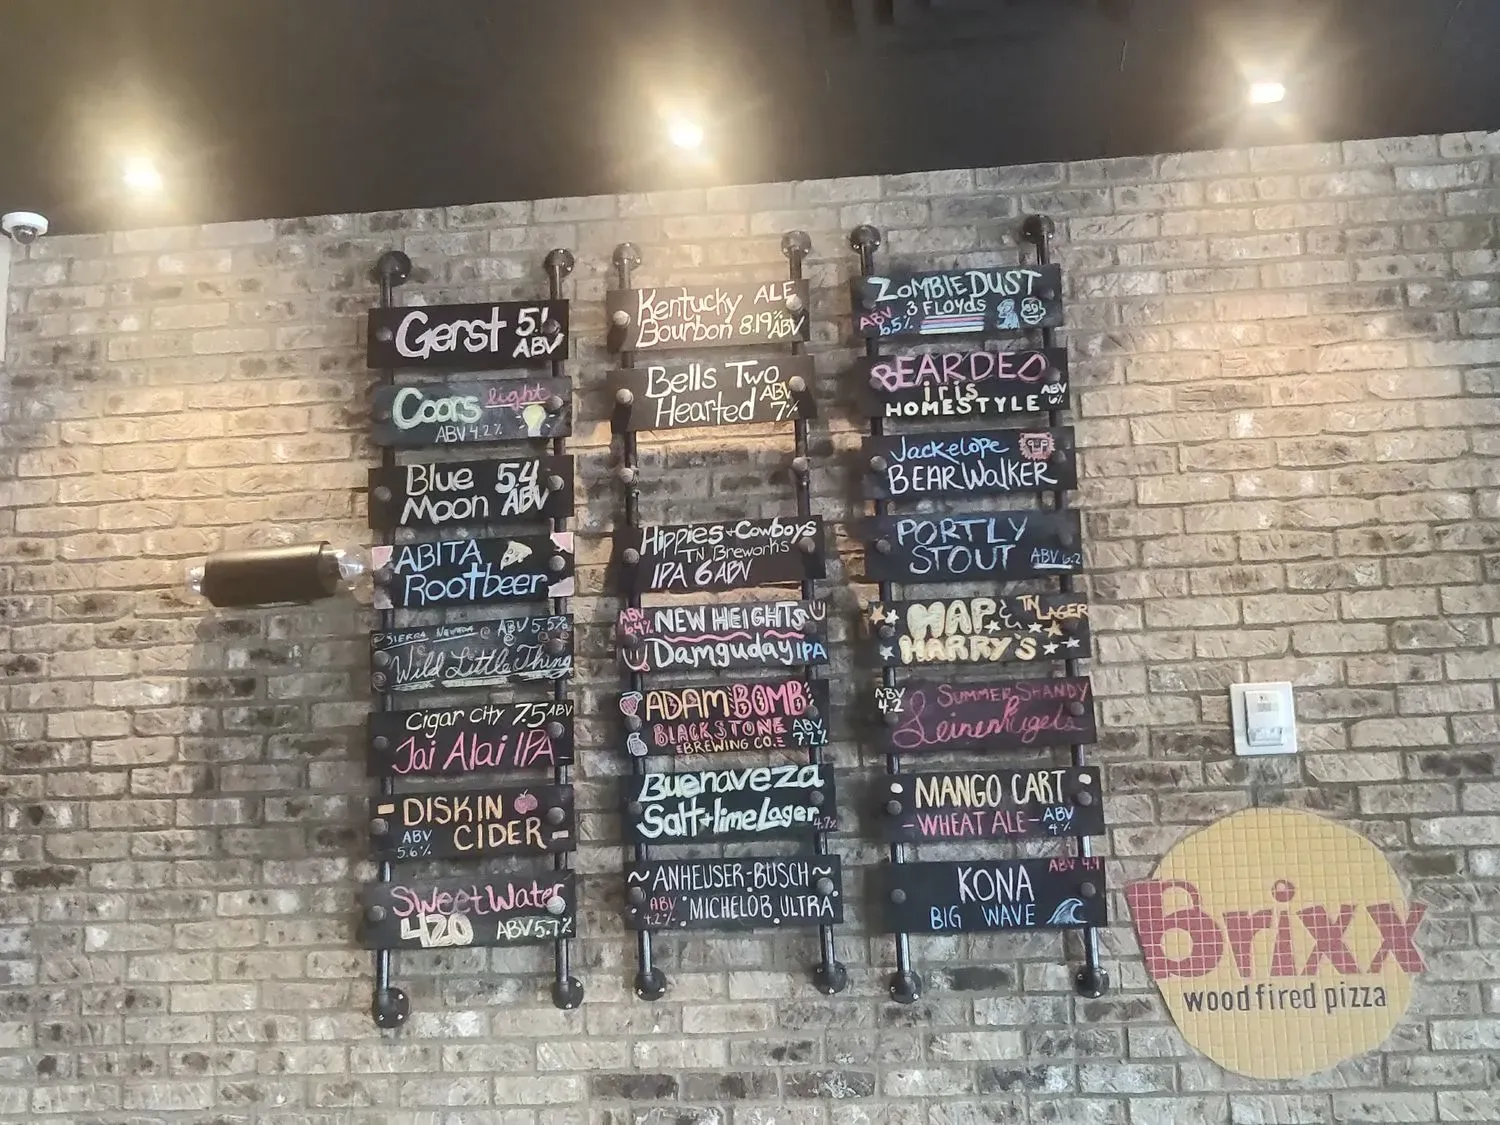 Gerst 5.1
ABV
Coors light
ABV 4.2%
Blue 5.4
Moon ABV
ABITA
Rootbeer
SIERRA NEVADA ABV 5.5%
Wild Little Thing
Cigar City 7.5 ABV
Jai Alai IPA
DISKIN
ABV
5.6% CIDER
SweetWater
420 ABV 5.7%
Kentucky ALE
Bourbon 8.19% ABV
Bells Two
Hearted ABV
7%
Hippies + Cowboys
TN Breworks
IPA 6 ABV
ABV
6.4% NEW HEIGHTS
Damguday IPA
ADAM BOMB
BLACKSTONE
BREWING CO. ABV
7.2%
Buenaveza
Salt + lime Lager 4.7%
~ ANHEUSER-BUSCH ~
ABV
4.2% MICHELOB ULTRA
ZOMBIE DUST
3 FLOYDS
ABV
6.5%
BEARDED
iris ABV
6%
HOMESTYLE
Jackelope
BEARWALKER
PORTLY
STOUT ABV 6.2
MAP & TN LAGER
HARRY'S
ABV
4.2 SUMMER SHANDY
Leinenkugels
MANGO CART
- WHEAT ALE - ABV
4%
ABV 4.4
KONA
BIG WAVE
Brixx
wood fired pizza